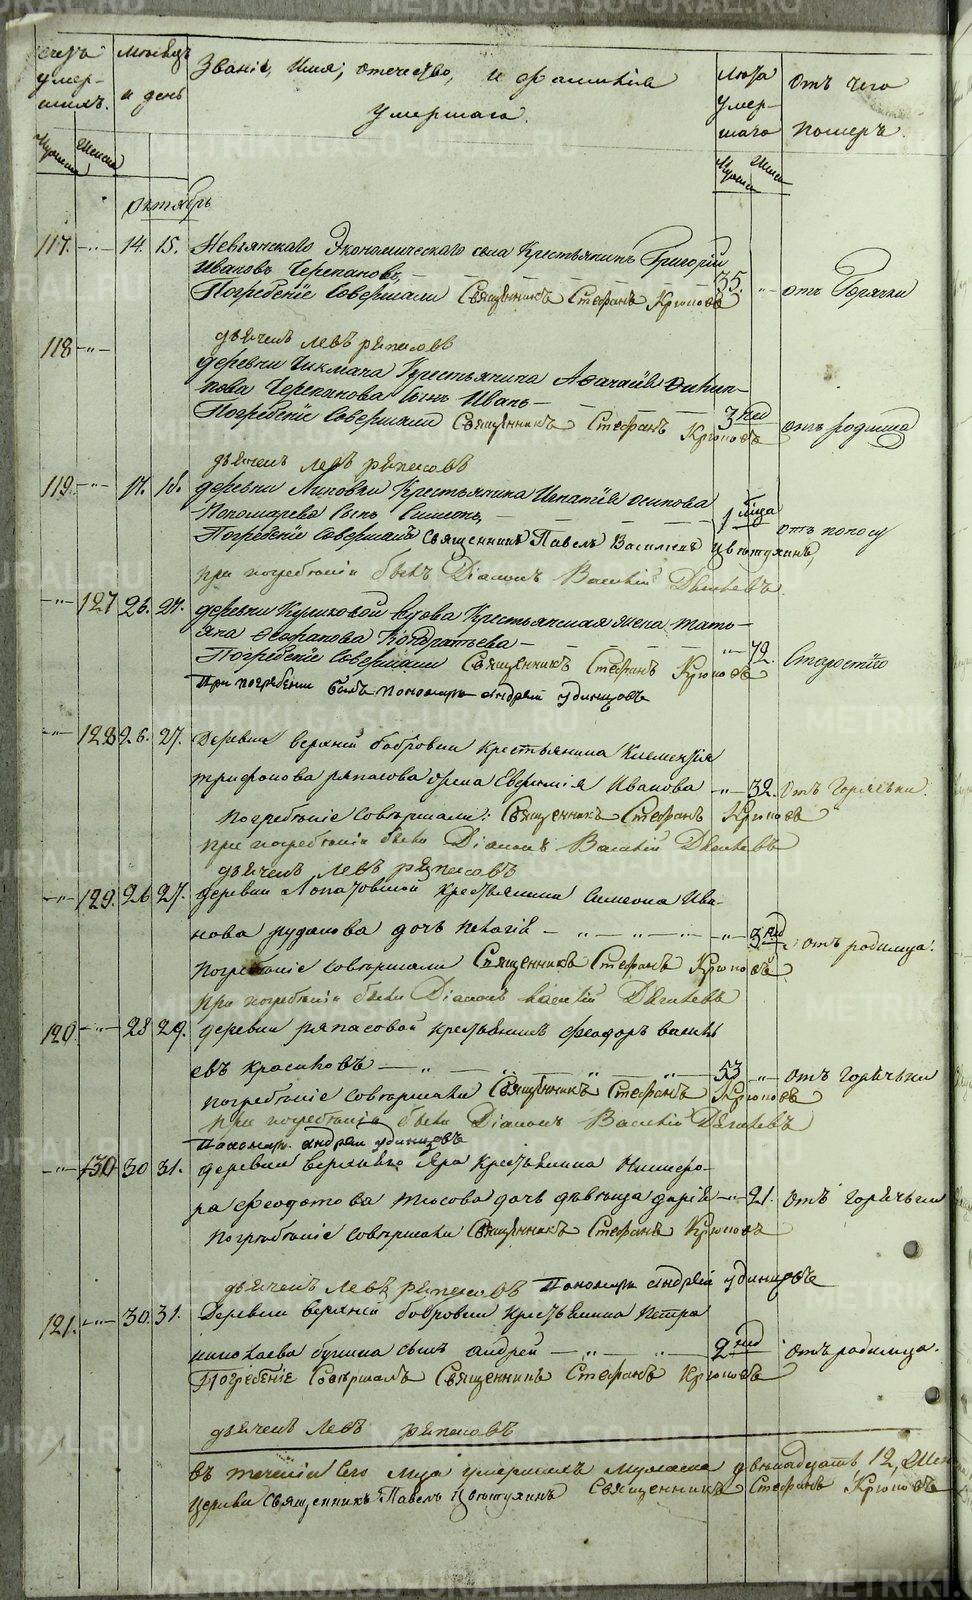 METRIKI.GASO-URAL.RU
счетъ умершихъ.
Мужска Женска
Месяцъ и день
Званіе, Имя, отечество, и фамилія умершаго.
Лета умершаго
Мужска Женска
Отъ чего померъ.
Октябрь
117. —"— 14. 15. Невьянскаго Экономическаго села Крестьянинъ Григорій
Ивановъ Черепановъ, — 35. " отъ Горячки
Погребеніе Совершали Священникъ Стефанъ Крюковъ
дьячекъ Левъ Ряпосовъ
118 —"—
деревни Чикмача Крестьянина
Черепанова Сынъ Иванъ — 3 нед отъ родимца
Погребеніе Совершали Священникъ Стефанъ Крюковъ
дьячекъ Левъ Ряпосовъ
119. —"— 17. 18. деревни Липовки Крестьянина Игнатія Осипова
Пономарева Сынъ Симеонъ, — 1 мѣца отъ поносу
Погребеніе Совершалъ Священникъ Павелъ Василіевъ Цвѣтухинъ,
при погребеніи былъ Діаконъ Василій
—"— 127 26. 27. деревни Куликовой вдова Крестьянская жена Тать-
яна Феофанова Кондратьева — " — 72. Старостію
Погребеніе Совершали Священникъ Стефанъ Крюковъ
При погребении былъ пономарь Андрей Удинцовъ
—"— 128 26. 27. Деревни верхней бобровки крестьянина Климентія
трифонова ряпасова жена Евфимія Иванова —"— 32. Отъ Горячки.
погребеніе совершали: Священникъ Стефанъ Крюковъ
при погребеніи были Діаконъ Василій
дьячекъ Левъ Ряпосовъ
—"— 129. 26 27. деревни Лопатовской крестьянина Симеона Ива-
нова рудакова дочь пелагія — " — " — 3 нед отъ родимца.
погребеніе совершали Священникъ Стефанъ Крюковъ
при погребеніи были Діаконъ Василій
120. —"— 28 29. деревни ряпасовой крестьянинъ Феодоръ василь-
евъ красиковъ — " — 53 — " — отъ горячки
погребеніе совершали Священникъ Стефанъ Крюковъ
при погребеніи были Діаконъ Василій
Пономарь Андрей Удинцовъ
—"— 130 30 31. деревни Яра Крестьянина Никифо-
ра Феодотова дочь девица дарія —"— 21. отъ горячки
погребеніе совершали Священникъ Стефанъ Крюковъ
дьячекъ Левъ Ряпосовъ Пономарь Андрей Удинцовъ
121. —"— 30. 31. Деревни верхней бобровки крестьянина Петра
николаева сынъ андрей — " — 2 нед отъ родимца.
Погребеніе Совершалъ Священникъ Стефанъ Крюковъ
дьячекъ Левъ Ряпосовъ
въ теченіи Сего Мца умершихъ мужеска двенадцать 12,
Церкви Священникъ Павелъ Цветухинъ Священникъ Стефанъ Крюковъ